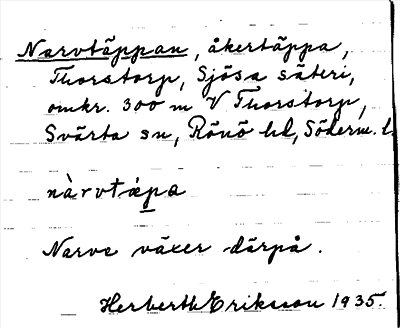 Narvtäppan, åkertäppa,
Thorstorp, Sjösa säteri,
omkr. 300 m V Thorstorp,
Svärta sn, Rönö hd, Söderm. l.
nàrvtæ̀pa
Narve växer därpå.
Herberth Eriksson 1935.